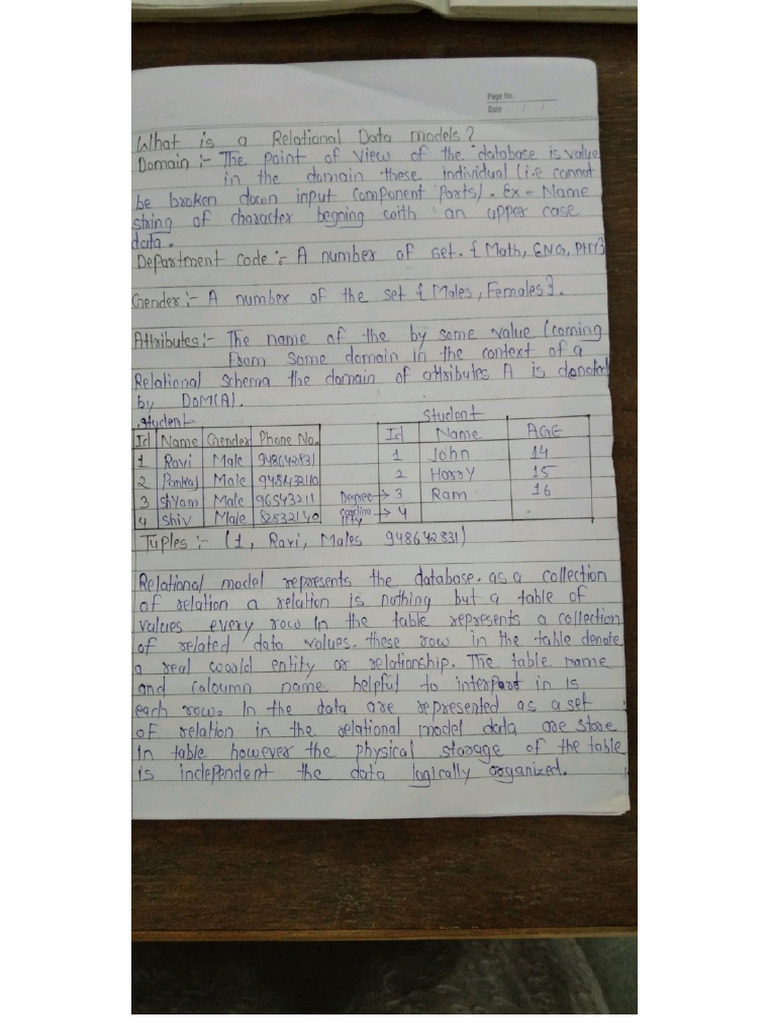 Page No.
Date / /
What is a Relational Data models?
Domain :- The point of view of the database is value
in the domain these individual (i.e cannot
be broken down input component parts). Ex - Name
string of character begning with an upper case
data.
Department code :- A number of set. { Math, ENG, PHY}
Gender :- A number of the set { Males, Females}.
Attributes :- The name of the by some value (coming
From some domain in the context of a
Relational schema the domain of attributes A is denoted
by DoM(A).
Student
Id Name Gender Phone No.
1 Ravi Male 948642831
2 Pankaj Male
3 Shyam Male 96543211
4 Shiv Male 82832140
Student
Id Name AGE
1 John 14
2 Harry 15
Degree → 3 Ram 16
→ 4
Tuples :- (1, Ravi, Males 948642831)
Relational model represents the database. as a collection
of relation a relation is nothing but a table of
values every row In the table represents a collection
of related data values. these row in the table denote
a real would entity or relationship. The table name
and caloumn name helpful to in Is
each row. In the data are represented as a set
of relation in the relational model data are store
In table however the physical storage of the table
is independent the data logically organized.